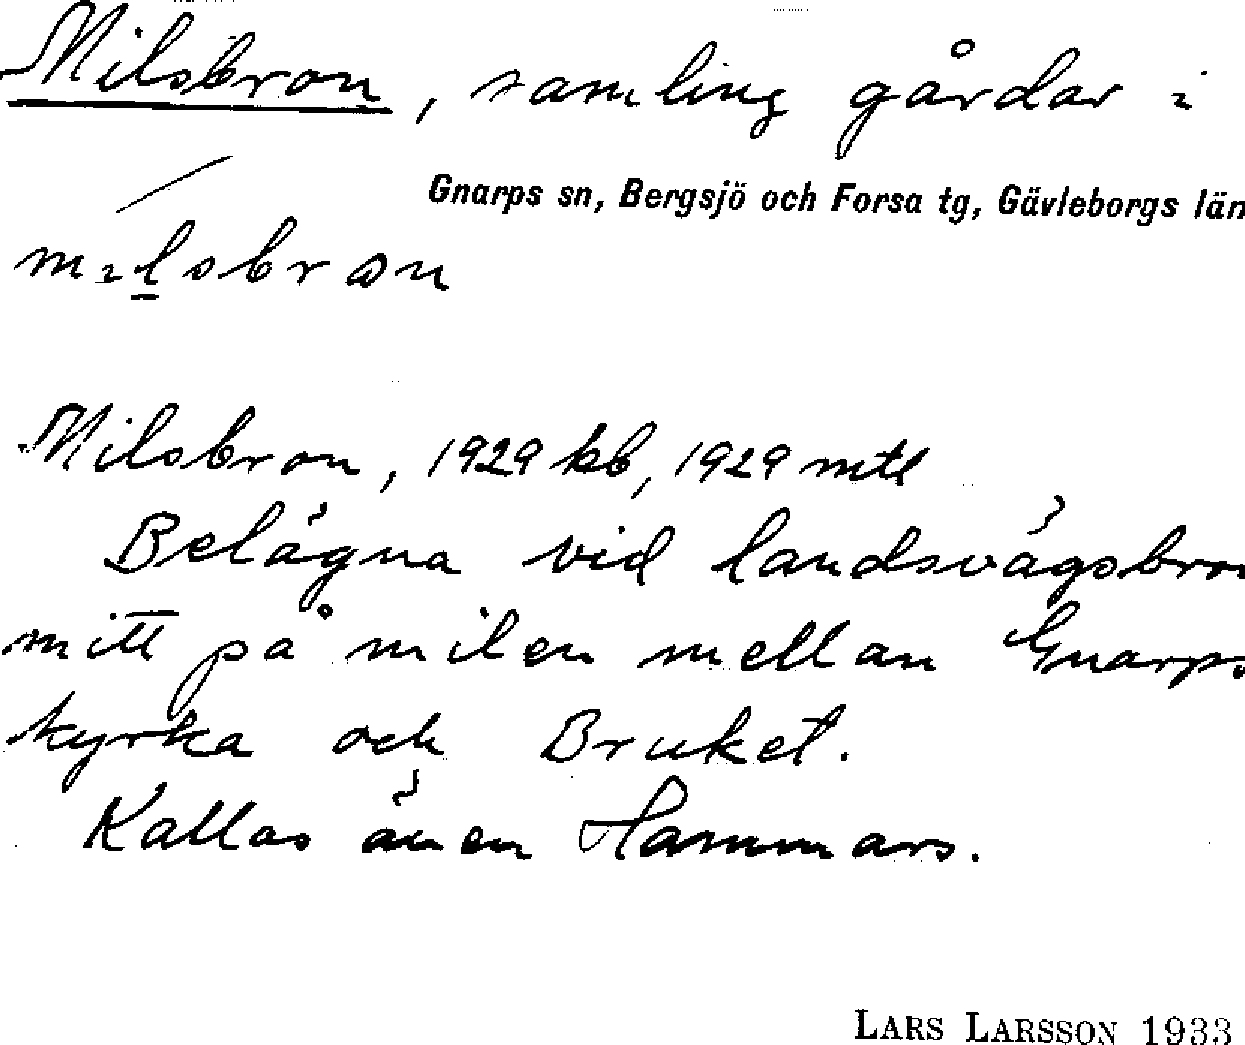 Milsbron, samling gårdar i
Gnarps sn, Bergsjö och Forsa tg, Gävleborgs län
milsbron
Milsbron, 1929 kb, 1929 mtl
Belägna vid landsvägsbron
mitt på milen mellan Gnarps
kyrka och Bruket.
Kallas även Hammars.
LARS LARSSON 1933